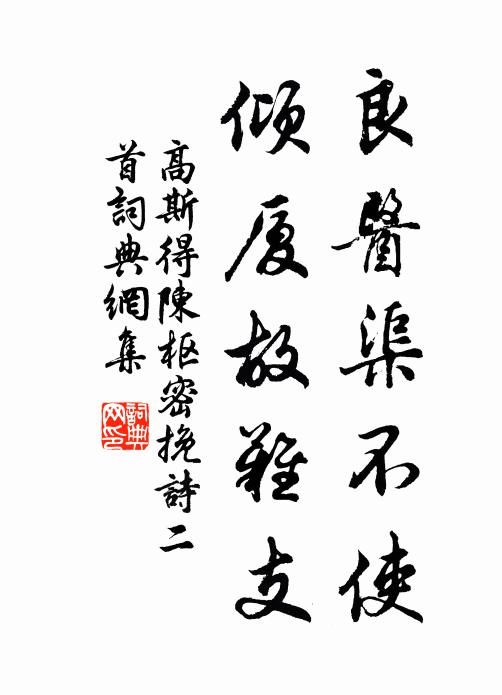 良醫渠不使
傾厦故難支
高斯得陳樞密挽詩二
首詞典網集
詞典
网印